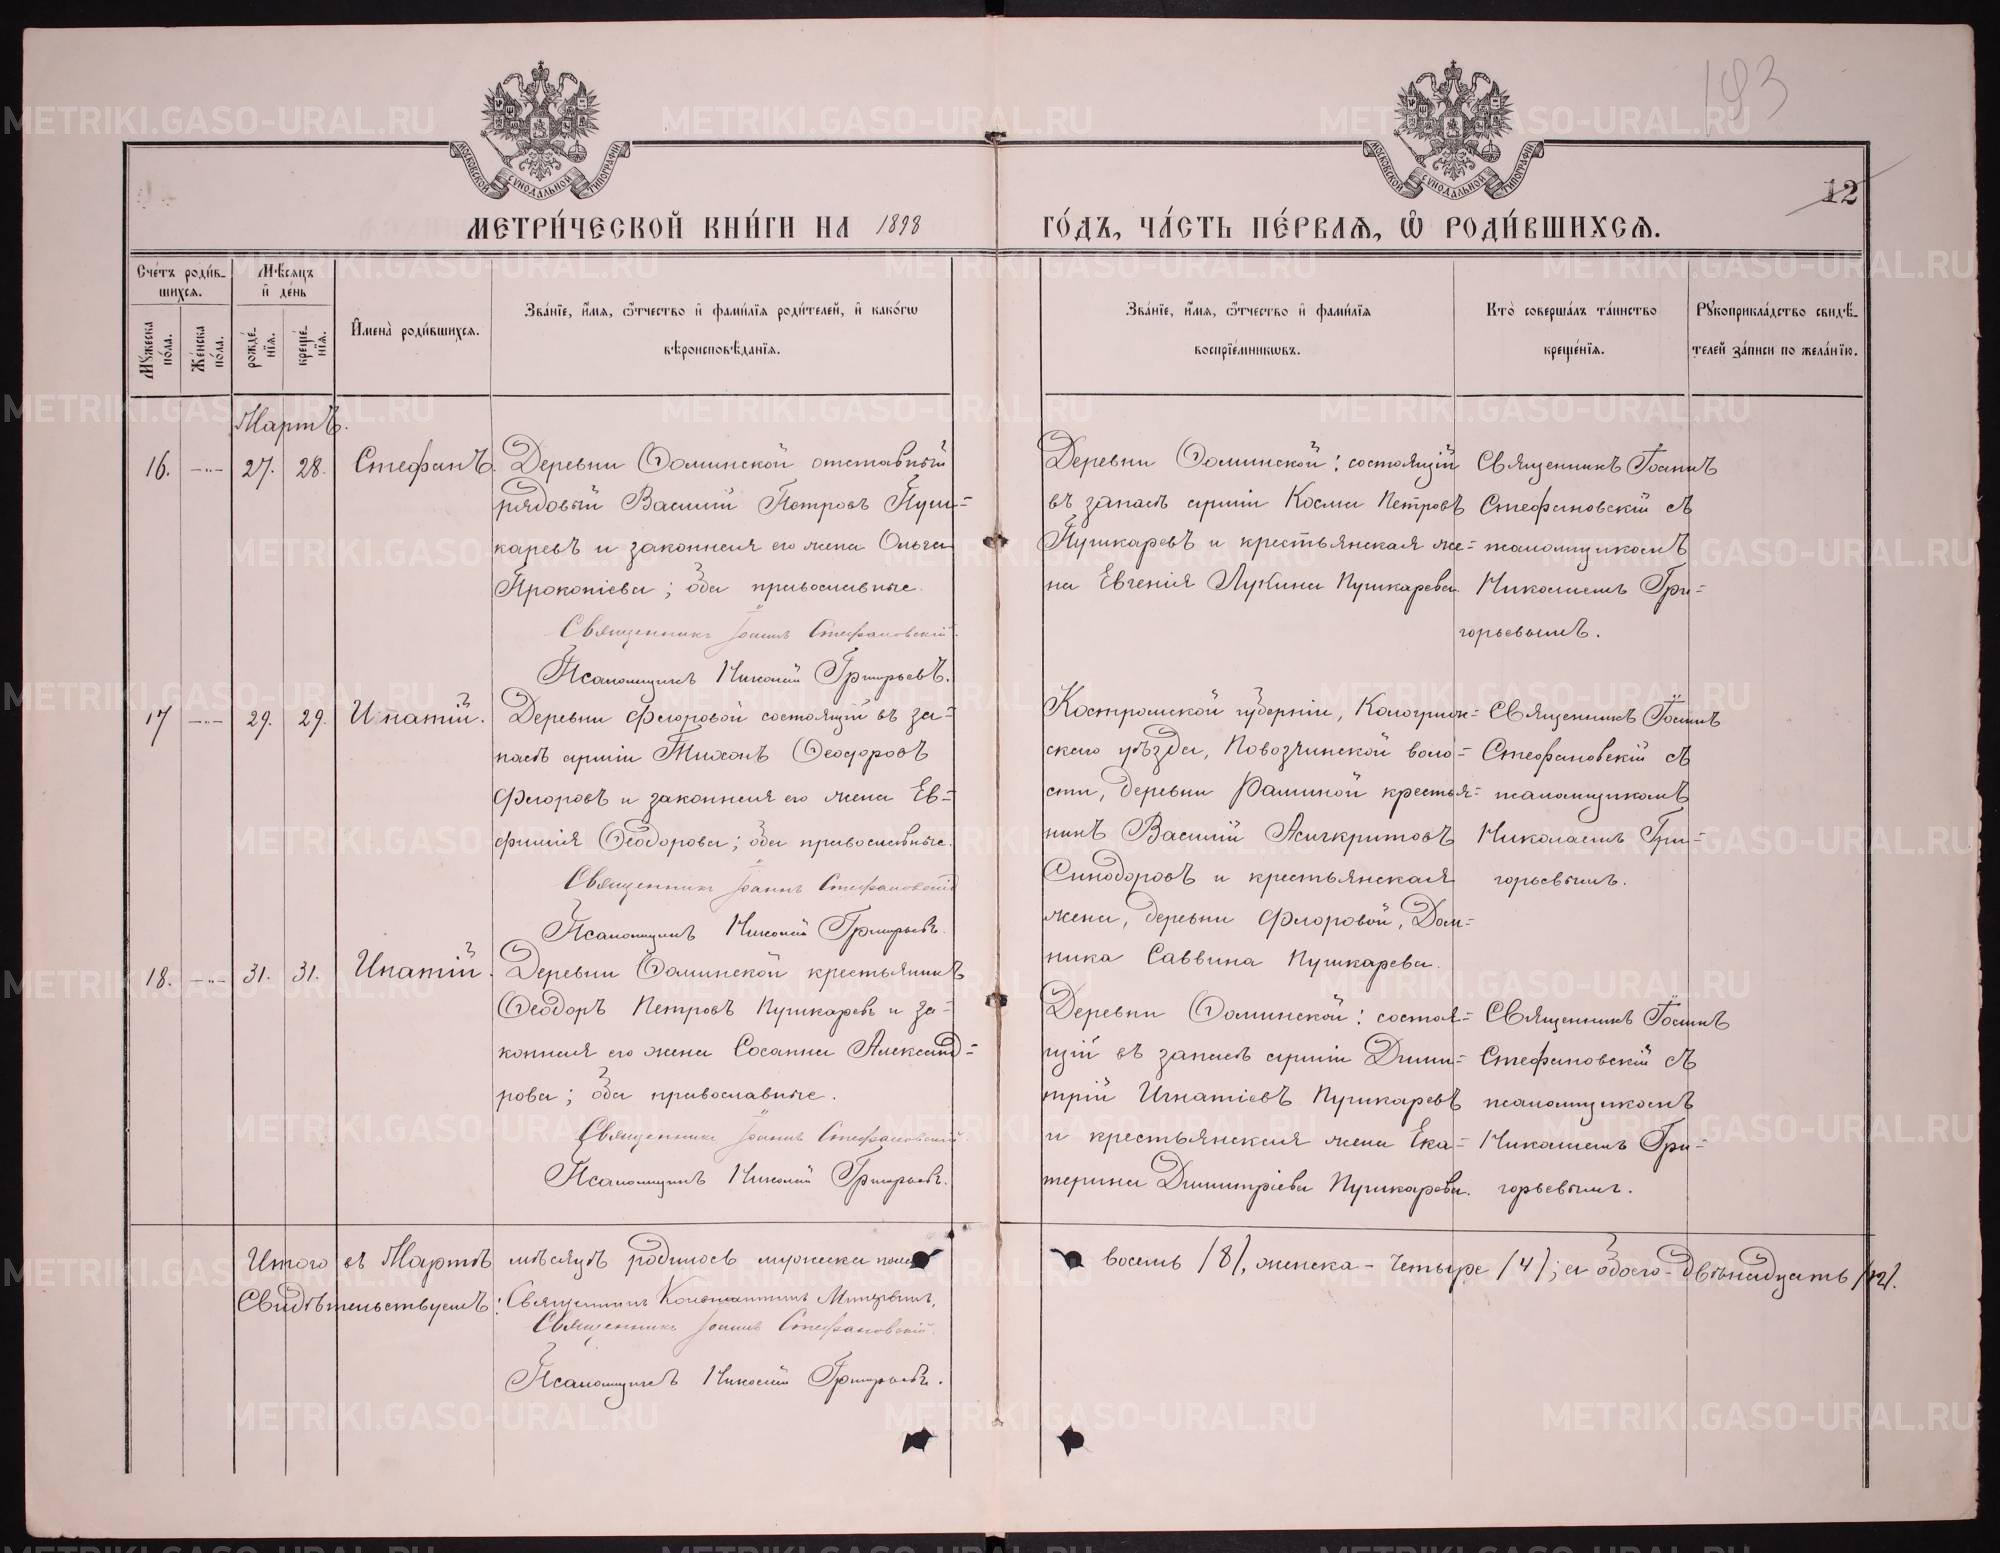 193
МОСКОВСКОЙ СѴНОДАЛЬНОЙ ТИПОГРАФІИ
МОСКОВСКОЙ СѴНОДАЛЬНОЙ ТИПОГРАФІИ
12
МЕТРИ́ЧЕСКОЙ КНИ́ГИ НА 1898 ГО́ДЪ, ЧА́СТЬ ПЕ́РВАѦ, Ѡ҆ РОДИ́ВШИХСѦ.
Сче́тъ роди́в-
шихсѧ.
Мꙋжеска по́ла.
Же́нска по́ла.
Мѣ́сѧцъ
и҆ де́нь
рожде́-
нїѧ.
креще́-
нїѧ.
И҆мена̀ роди́вшихсѧ.
Зва́нїе, и҆́мѧ, ѻ҆́тчество и҆ фами́лїѧ роди́телей, и҆ како́гѡ
вѣроисповѣ́данїѧ.
Зва́нїе, и҆́мѧ, ѻ҆́тчество и҆ фами́лїѧ
воспрїе́мникѡвъ.
Кто̀ соверша́лъ та́инство
креще́нїѧ.
Рꙋкоприкла́дство свидѣ́-
телей за́писи по жела́нїю.
Мартъ.
16. —"— 27. 28. Стефанъ.
Деревни Ѳоминской отставный
рядовый Василий Петровъ Пуш-
каревъ и законная его жена Ольга
Прокопіева; оба православные.
Священникъ Іоаннъ Стефановскій.
Псаломщикъ Николай Григорьевъ.
Деревни Ѳоминской: состоящій
въ запасѣ арміи Косма Петровъ
Пушкаревъ и крестьянская же-
на Евгенія Лукина Пушкарева.
Священникъ Іоаннъ
Стефановскій съ
псаломщикомъ
Николаемъ Гри-
горьевымъ.
17 —"— 29. 29. Ипатій.
Деревни Флоровой состоящій въ за-
пасѣ арміи Тихонъ Ѳеодоровъ
Флоровъ и законная его жена Ев-
фимія Ѳеодорова; оба православные.
Священникъ Іоаннъ Стефановскій
Псаломщикъ Николай Григорьевъ.
Костромской губерніи, Кологрив-
скаго уѣзда, воло-
сти, деревни крестья-
нинъ Василій Асигкритовъ
и крестьянская
жена, деревни Флоровой, Дом-
ника Саввина Пушкарева.
Священникъ Іоаннъ
Стефановскій съ
псаломщикомъ
Николаемъ Гри-
горьевымъ.
18. —"— 31. 31. Ипатій.
Деревни Ѳоминской крестьянинъ
Ѳеодоръ Петровъ Пушкаревъ и за-
конная его жена Сосанна Александ-
рова; оба православные.
Священникъ Іоаннъ Стефановскій.
Псаломщикъ Николай Григорьевъ.
Деревни Ѳоминской: состоя-
щій въ запасѣ арміи Дими-
трій Игнатіевъ Пушкаревъ
и крестьянская жена Ека-
терина Димитріева Пушкарева.
Священникъ Іоаннъ
Стефановскій съ
псаломщикомъ
Николаемъ Гри-
горьевымъ.
Итого въ Мартѣ мѣсяцѣ родилось мужеска пола восемь /8/, женска - четыре /4/; а обоего - двѣнадцать /12/.
Свидѣтельствуемъ: Священникъ Константинъ
Священникъ Іоаннъ Стефановскій.
Псаломщикъ Николай Григорьевъ.
METRIKI.GASO-URAL.RU